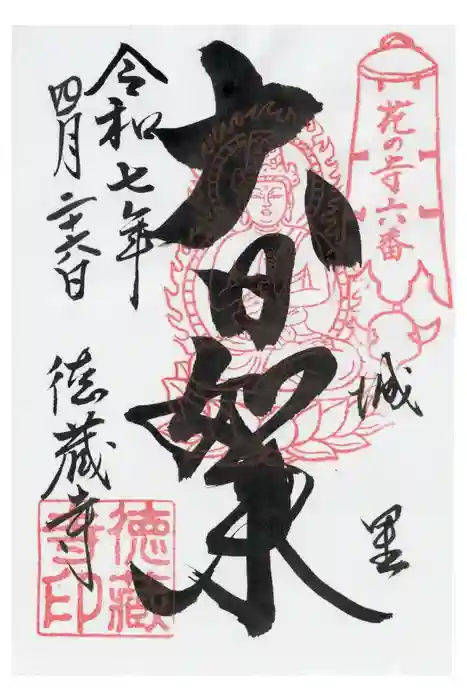 花の寺六番
城里
大日如来
令和七年
四月二十六日
徳蔵寺
徳蔵
寺印